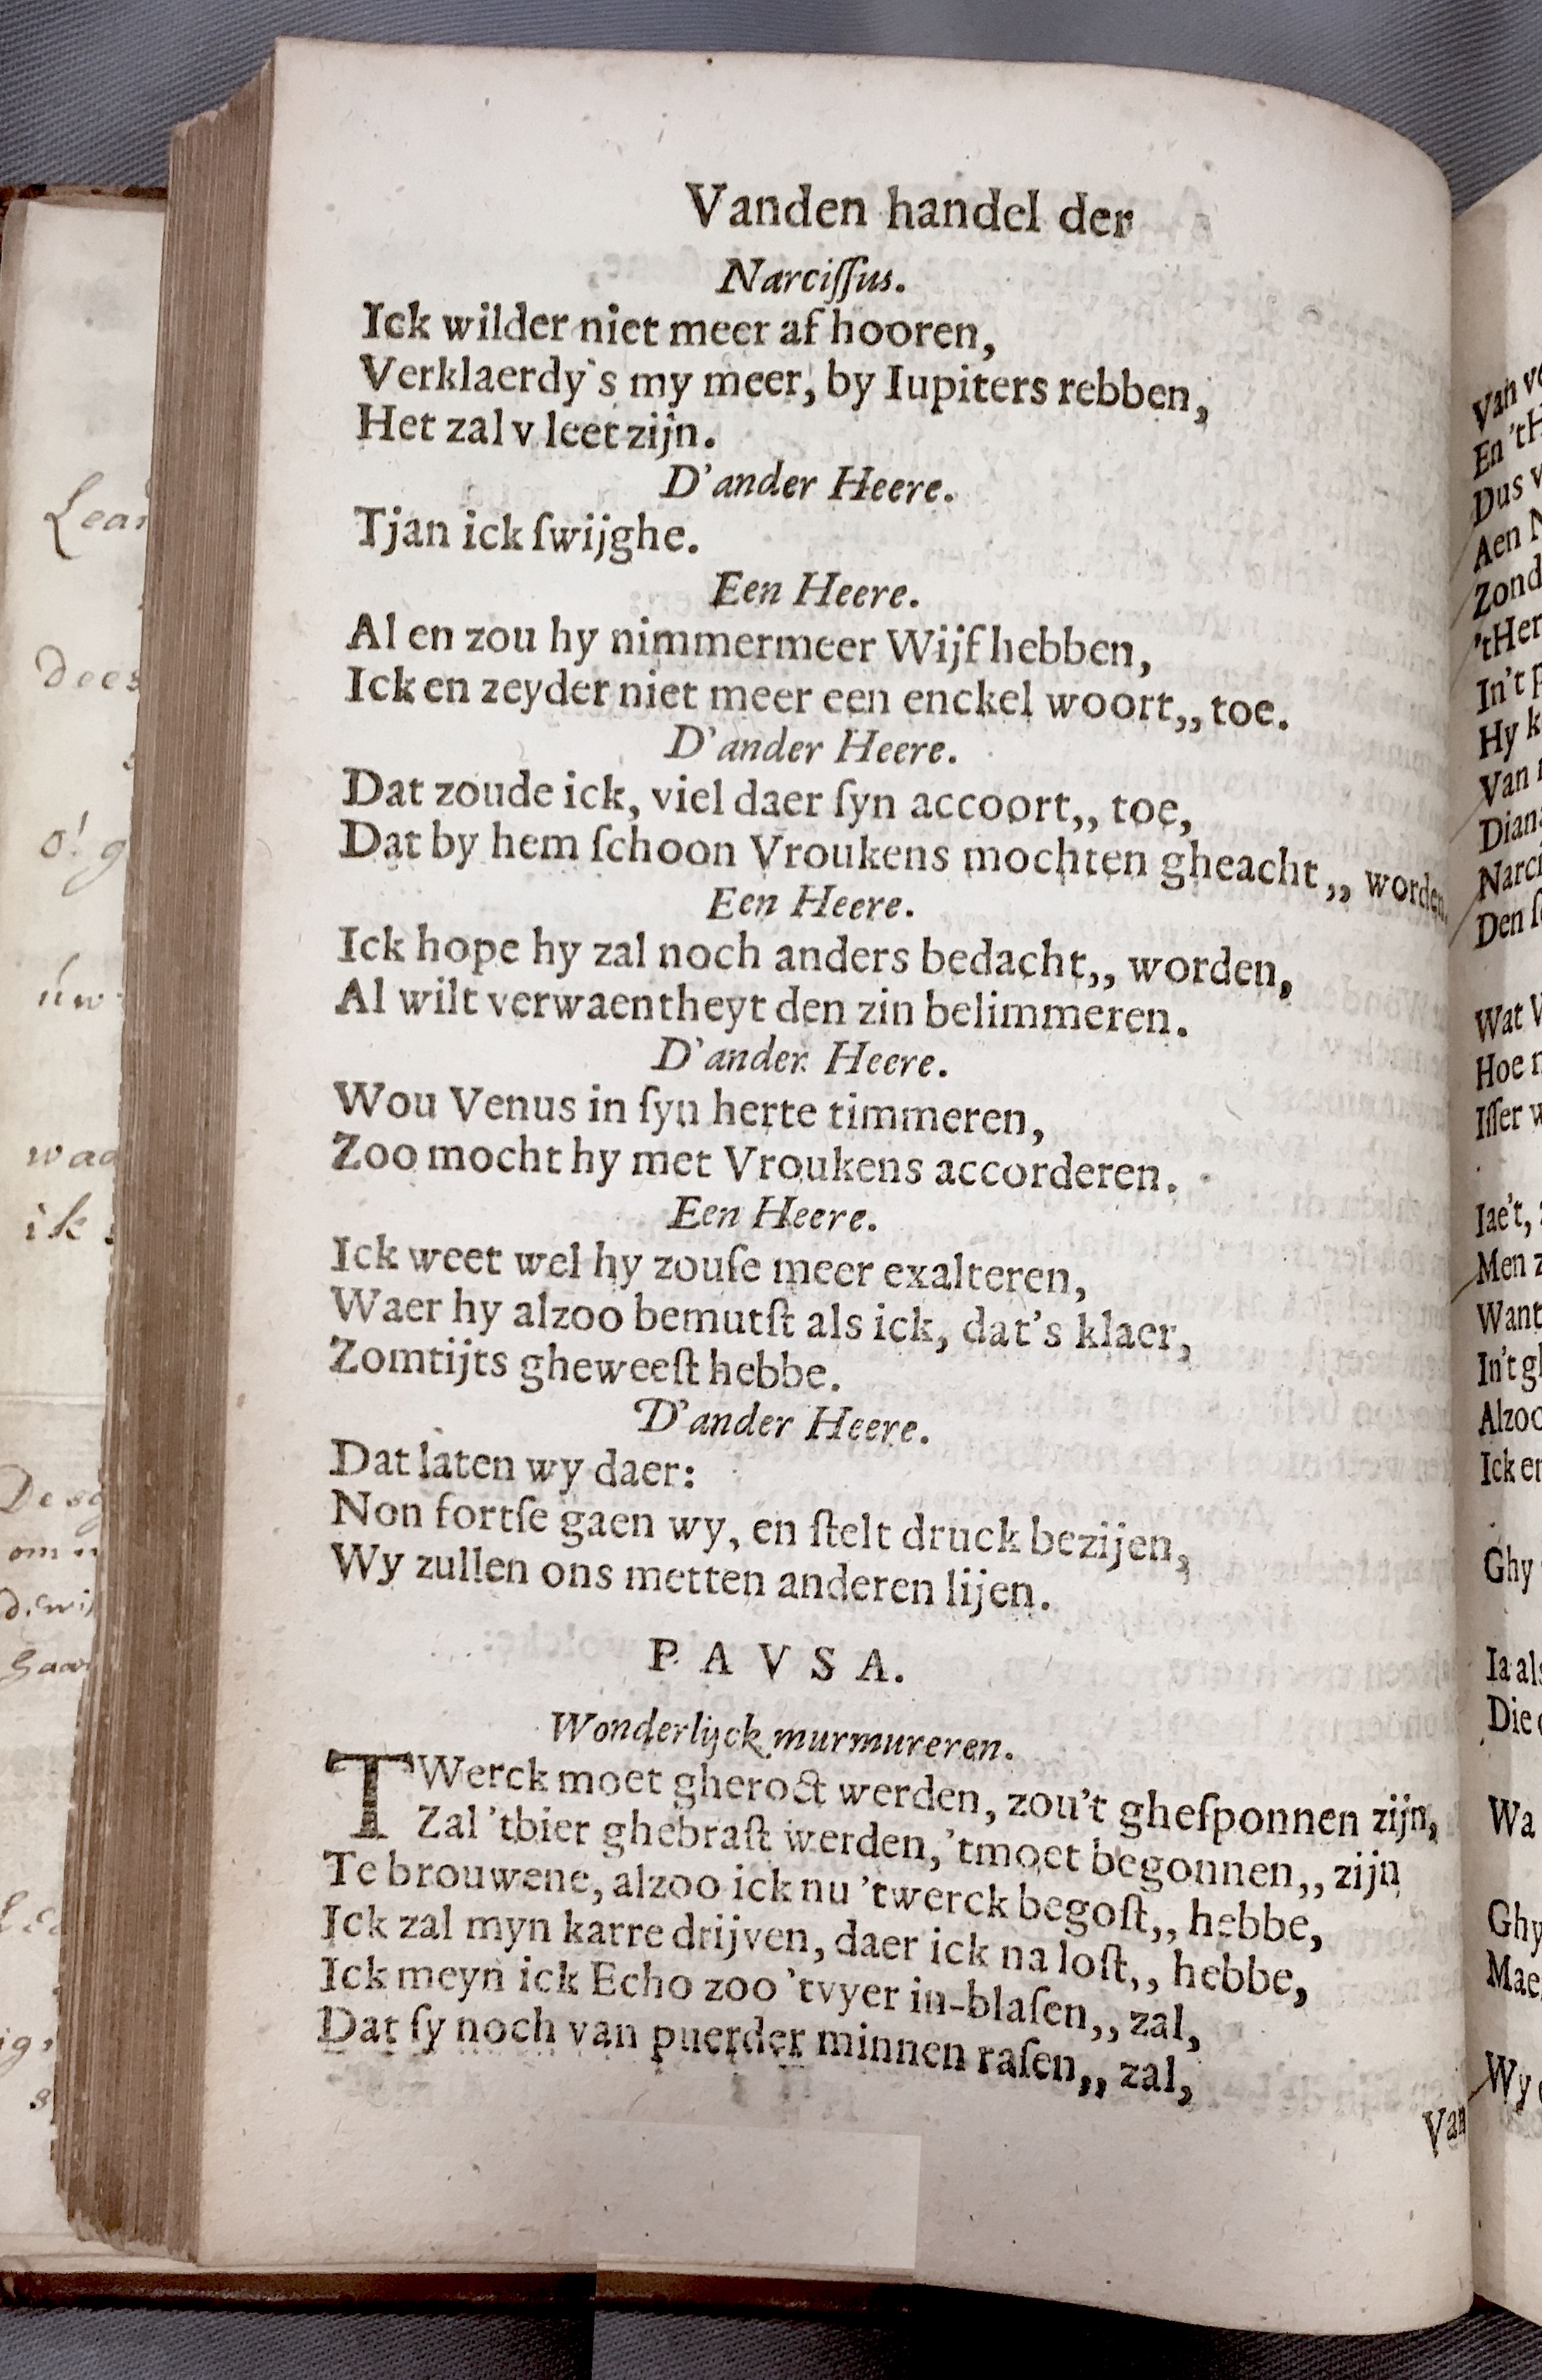 Vanden handel der
Narciſſus.
Ick wilder niet meer af hooren,
Verklaerdy's my meer, by Iupiters rebben,
Het zal v leet zijn.
D'ander Heere.
Tjan ick ſwijghe.
Een Heere.
Al en zou hy nimmermeer Wijf hebben,
Ick en zeyder niet meer een enckel woort,, toe.
D'ander Heere.
Dat zoude ick, viel daer ſyn accoort,, toe,
Dat by hem ſchoon Vroukens mochten gheacht,, worden.
Een Heere.
Ick hope hy zal noch anders bedacht,, worden,
Al wilt verwaentheyt den zin belimmeren.
D'ander Heere.
Wou Venus in ſyn herte timmeren,
Zoo mocht hy met Vroukens accorderen.
Een Heere.
Ick weet wel hy zouſe meer exalteren,
Waer hy alzoo bemutſt als ick, dat's klaer,
Zomtijts gheweeſt hebbe.
D'ander Heere.
Dat laten wy daer:
Non fortſe gaen wy, en ſtelt druck bezijen,
Wy zullen ons metten anderen lijen.
PAVSA.
Wonderlijck murmureren.
TWerck moet gheroct werden, zou't gheſponnen zijn,
Zal 'tbier ghebraſt werden, 'tmoet begonnen,, zijn
Te brouwene, alzoo ick nu 'twerck begoſt,, hebbe,
Ick zal myn karre drijven, daer ick na loſt,, hebbe,
Ick meyn ick Echo zoo 'tvyer in-blaſen,, zal,
Dat ſy noch van puerder minnen raſen,, zal,
Van
En 'tH
Dus
Aen N
Zond
'tHer
In't
Hy k
Van
Diana
Narci
Den
Wat
Hoe
Iſſer
Iae't,
Men z
Want
In't gh
Alzoo
Ick en
Ghy
Ia als
Die
Wa
Ghy
Mae
Wy